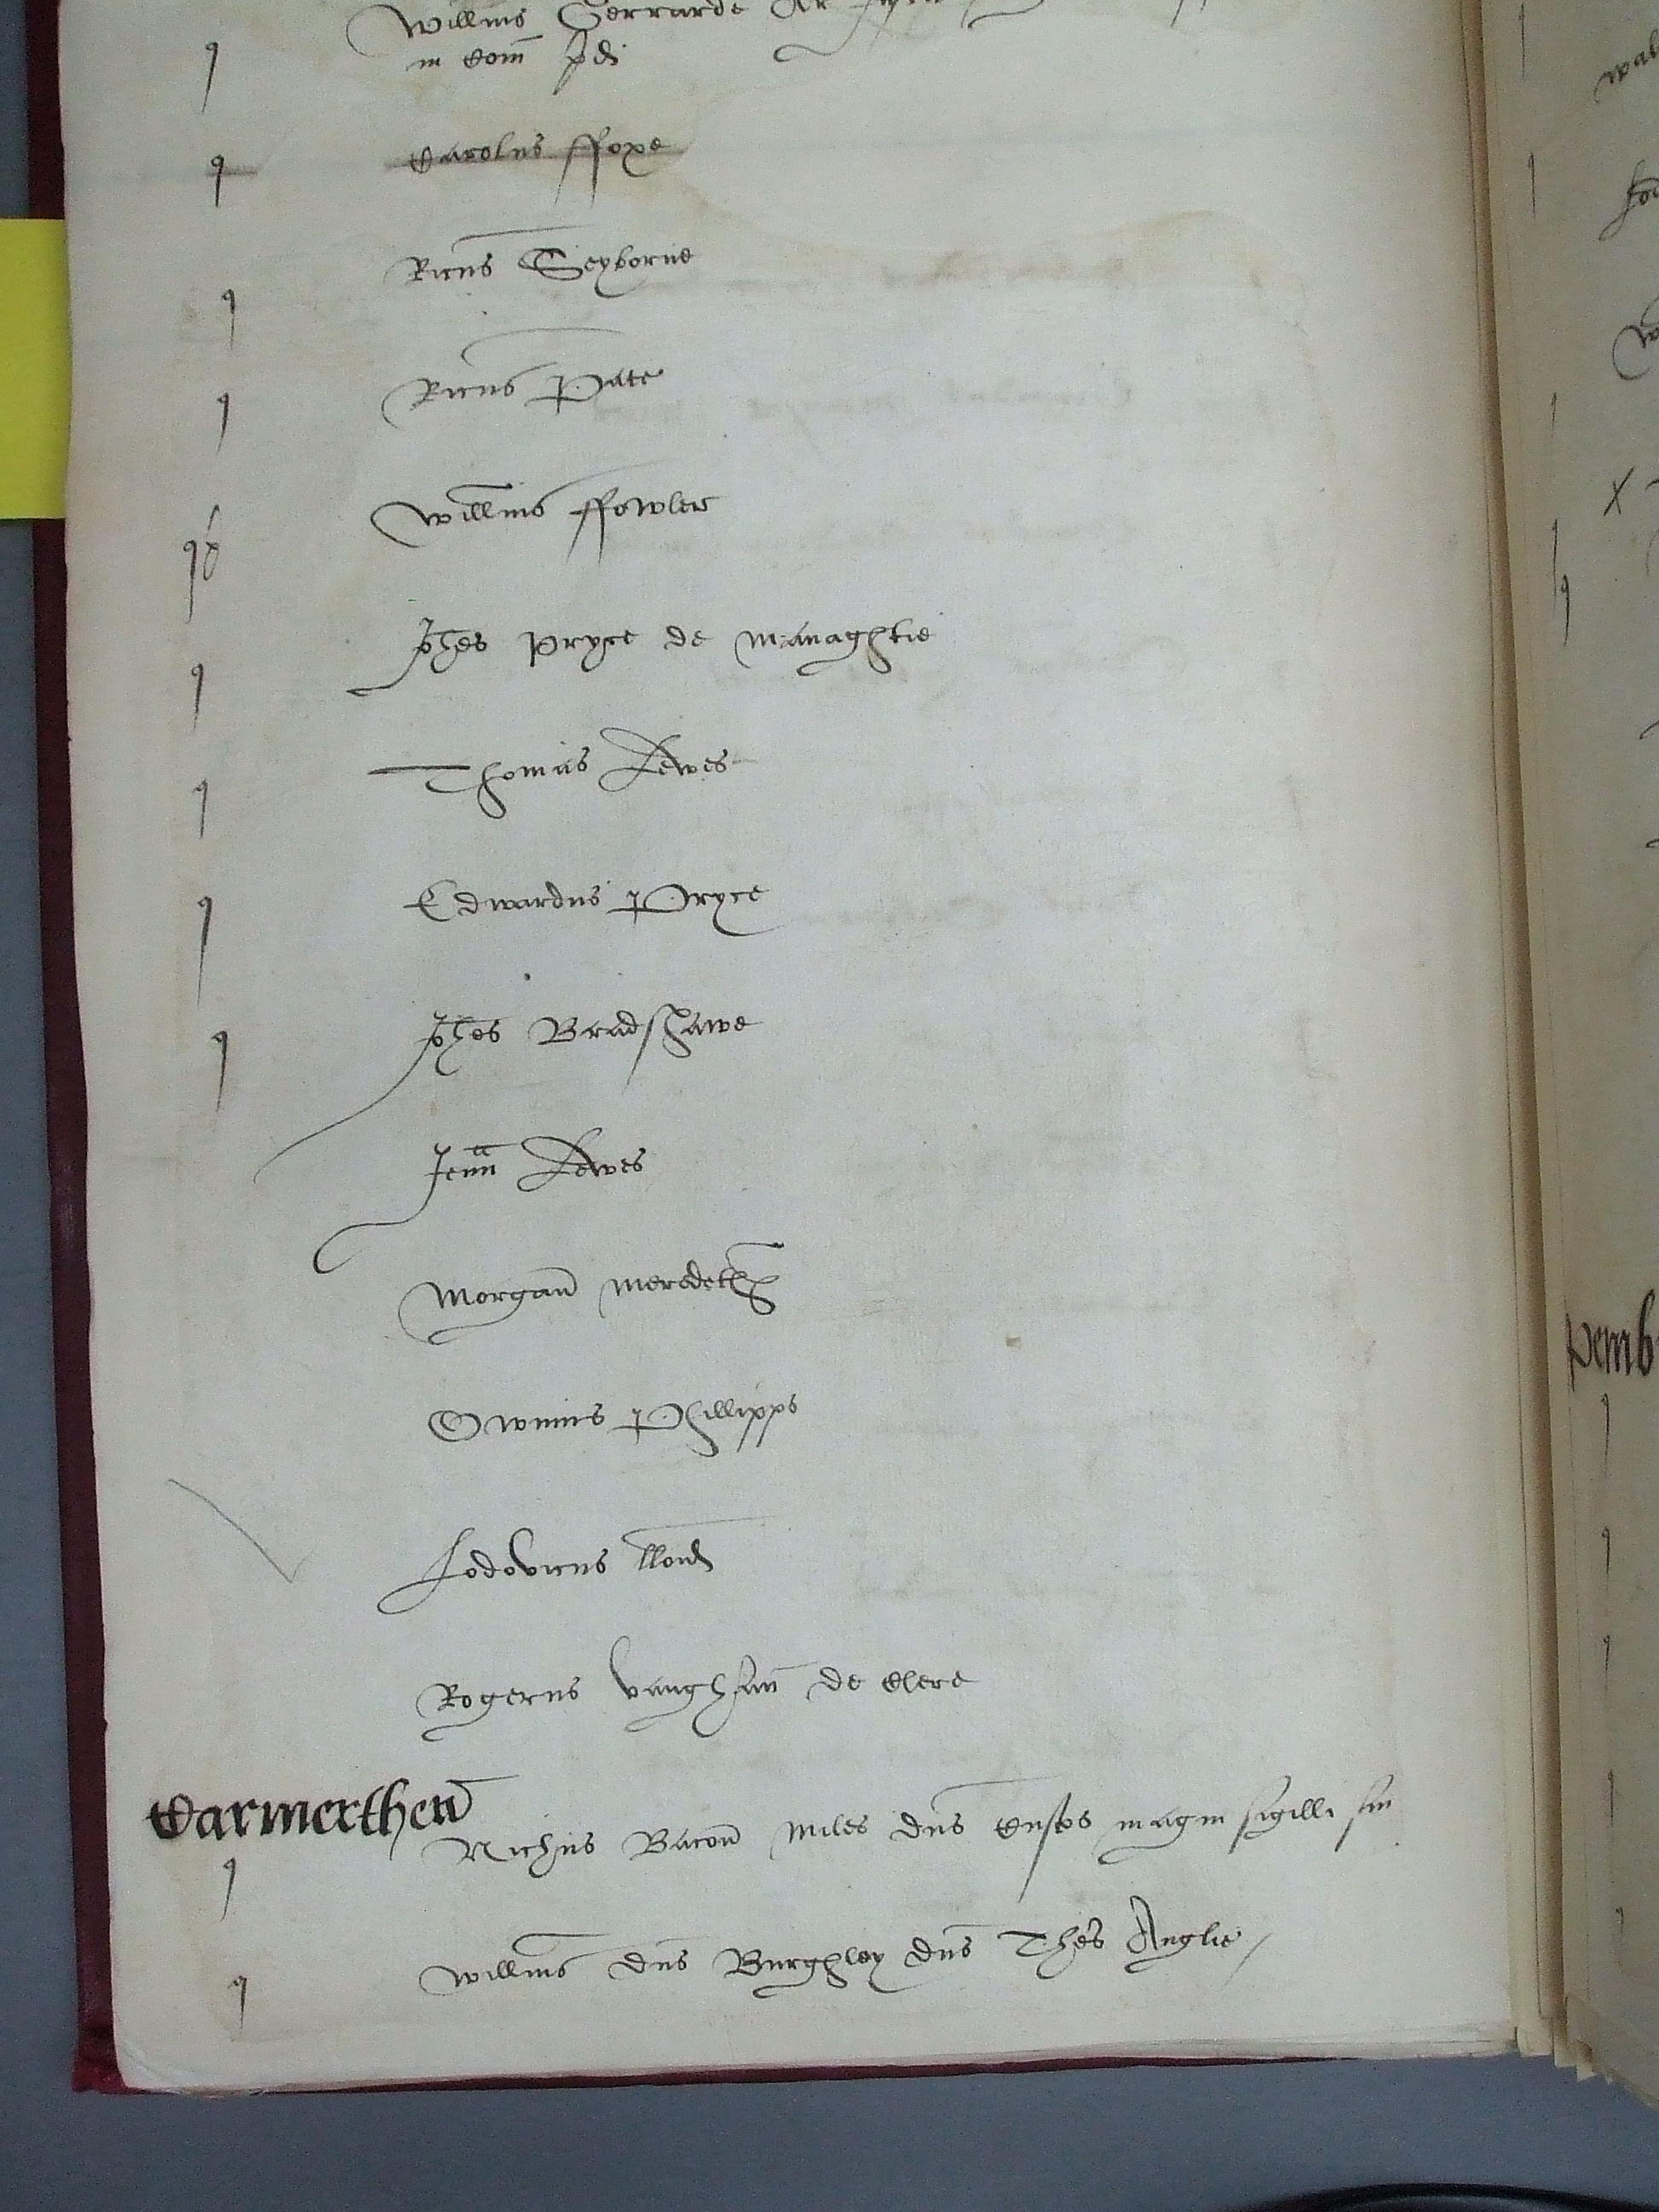 Willms Gerrarde Ar
in Com pd
Carolus ffoxe
Ricus Seyborne
Ricus Pate
Willms ffowler
Johes Pryce de Managhtie
Thomas Lewes
Edwardus Pryce
Johes Bradshawe
Jeun Lewes
Morgan Meredeth
Owinus Phillipps
Lodovicus lloid
Rogerus Vaughan de Clere
Carmerthen
Nichus Bacon Miles dns Custos magni sigilli
Willms dns Burghley dns Thes Anglie
Pemb